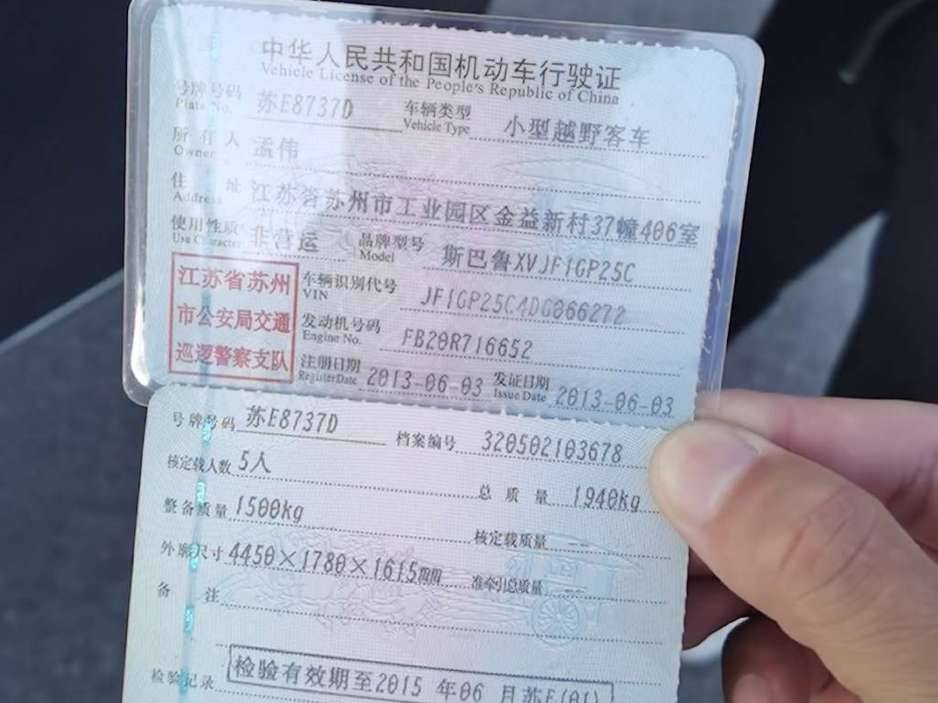 中华人民共和国机动车行驶证
Vehicle License of the People's Republic of China
号牌号码 苏E8737D 车辆类型 小型越野客车
Plate No. Vehicle Type
所有人 孟伟
Owner
住址 江苏省苏州市工业园区金益新村37幢406室
Address
使用性质 非营运 品牌型号 斯巴鲁XVJF1GP25C
Use Character Model
江苏省苏州
市公安局交通
巡逻警察支队
车辆识别代号 JF1GP25C4DG066272
VIN
发动机号码 FB20R716652
Engine No.
注册日期 2013-06-03 发证日期 2013-06-03
Register Date Issue Date
号牌号码 苏E8737D 档案编号 320502103678
核定载人数 5人 总质量 1940kg
整备质量 1500kg 核定载质量 --
外廓尺寸 4450×1780×1615mm 准牵引总质量 --
备注
检验记录 检验有效期至2015年06月苏E(01)